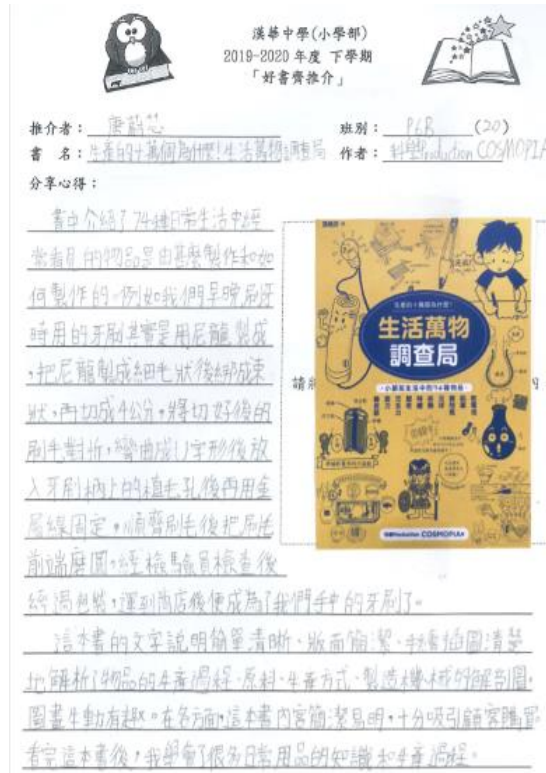 漢華中學(小學部)
2019-2020年度 下學期
「好書齊推介」
推介者： 唐蔚芯 班別： P6B (20)
書 名： 生產的十萬個為什麼！生活萬物調查局 作者： 科學Production COSMOPIA
分享心得：
書中介紹了74種日常生活中經
常看見的物品是由甚麼製作和如
何製作的。例如我們早晚刷牙
時用的牙刷其實是用尼龍製成
，把尼龍製成細毛狀後綁成束
狀，再切成4公分，將切好後的
刷毛對折，彎曲成U字形後放
入牙刷柄上的植毛孔後再用金
屬線固定，順齊刷毛後把刷毛
前端磨圓。經檢驗員檢查後
經過包裝，運到商店後便成為了我們手中的牙刷了。
這本書的文字說明簡單清晰、版面簡潔、手繪插圖清楚
地解析了物品的生產過程、原料、生產方式、製造機械的解剖圖。
圖畫生動有趣。在各方面，這本書內容簡潔易明，十分吸引顧客購買。
看完這本書後，我學會了很多日常用品的知識和生產過程。
請
生產的十萬個為什麼！
生活萬物
調查局
小朋友生活中的74種物品
科學Production COSMOPIA